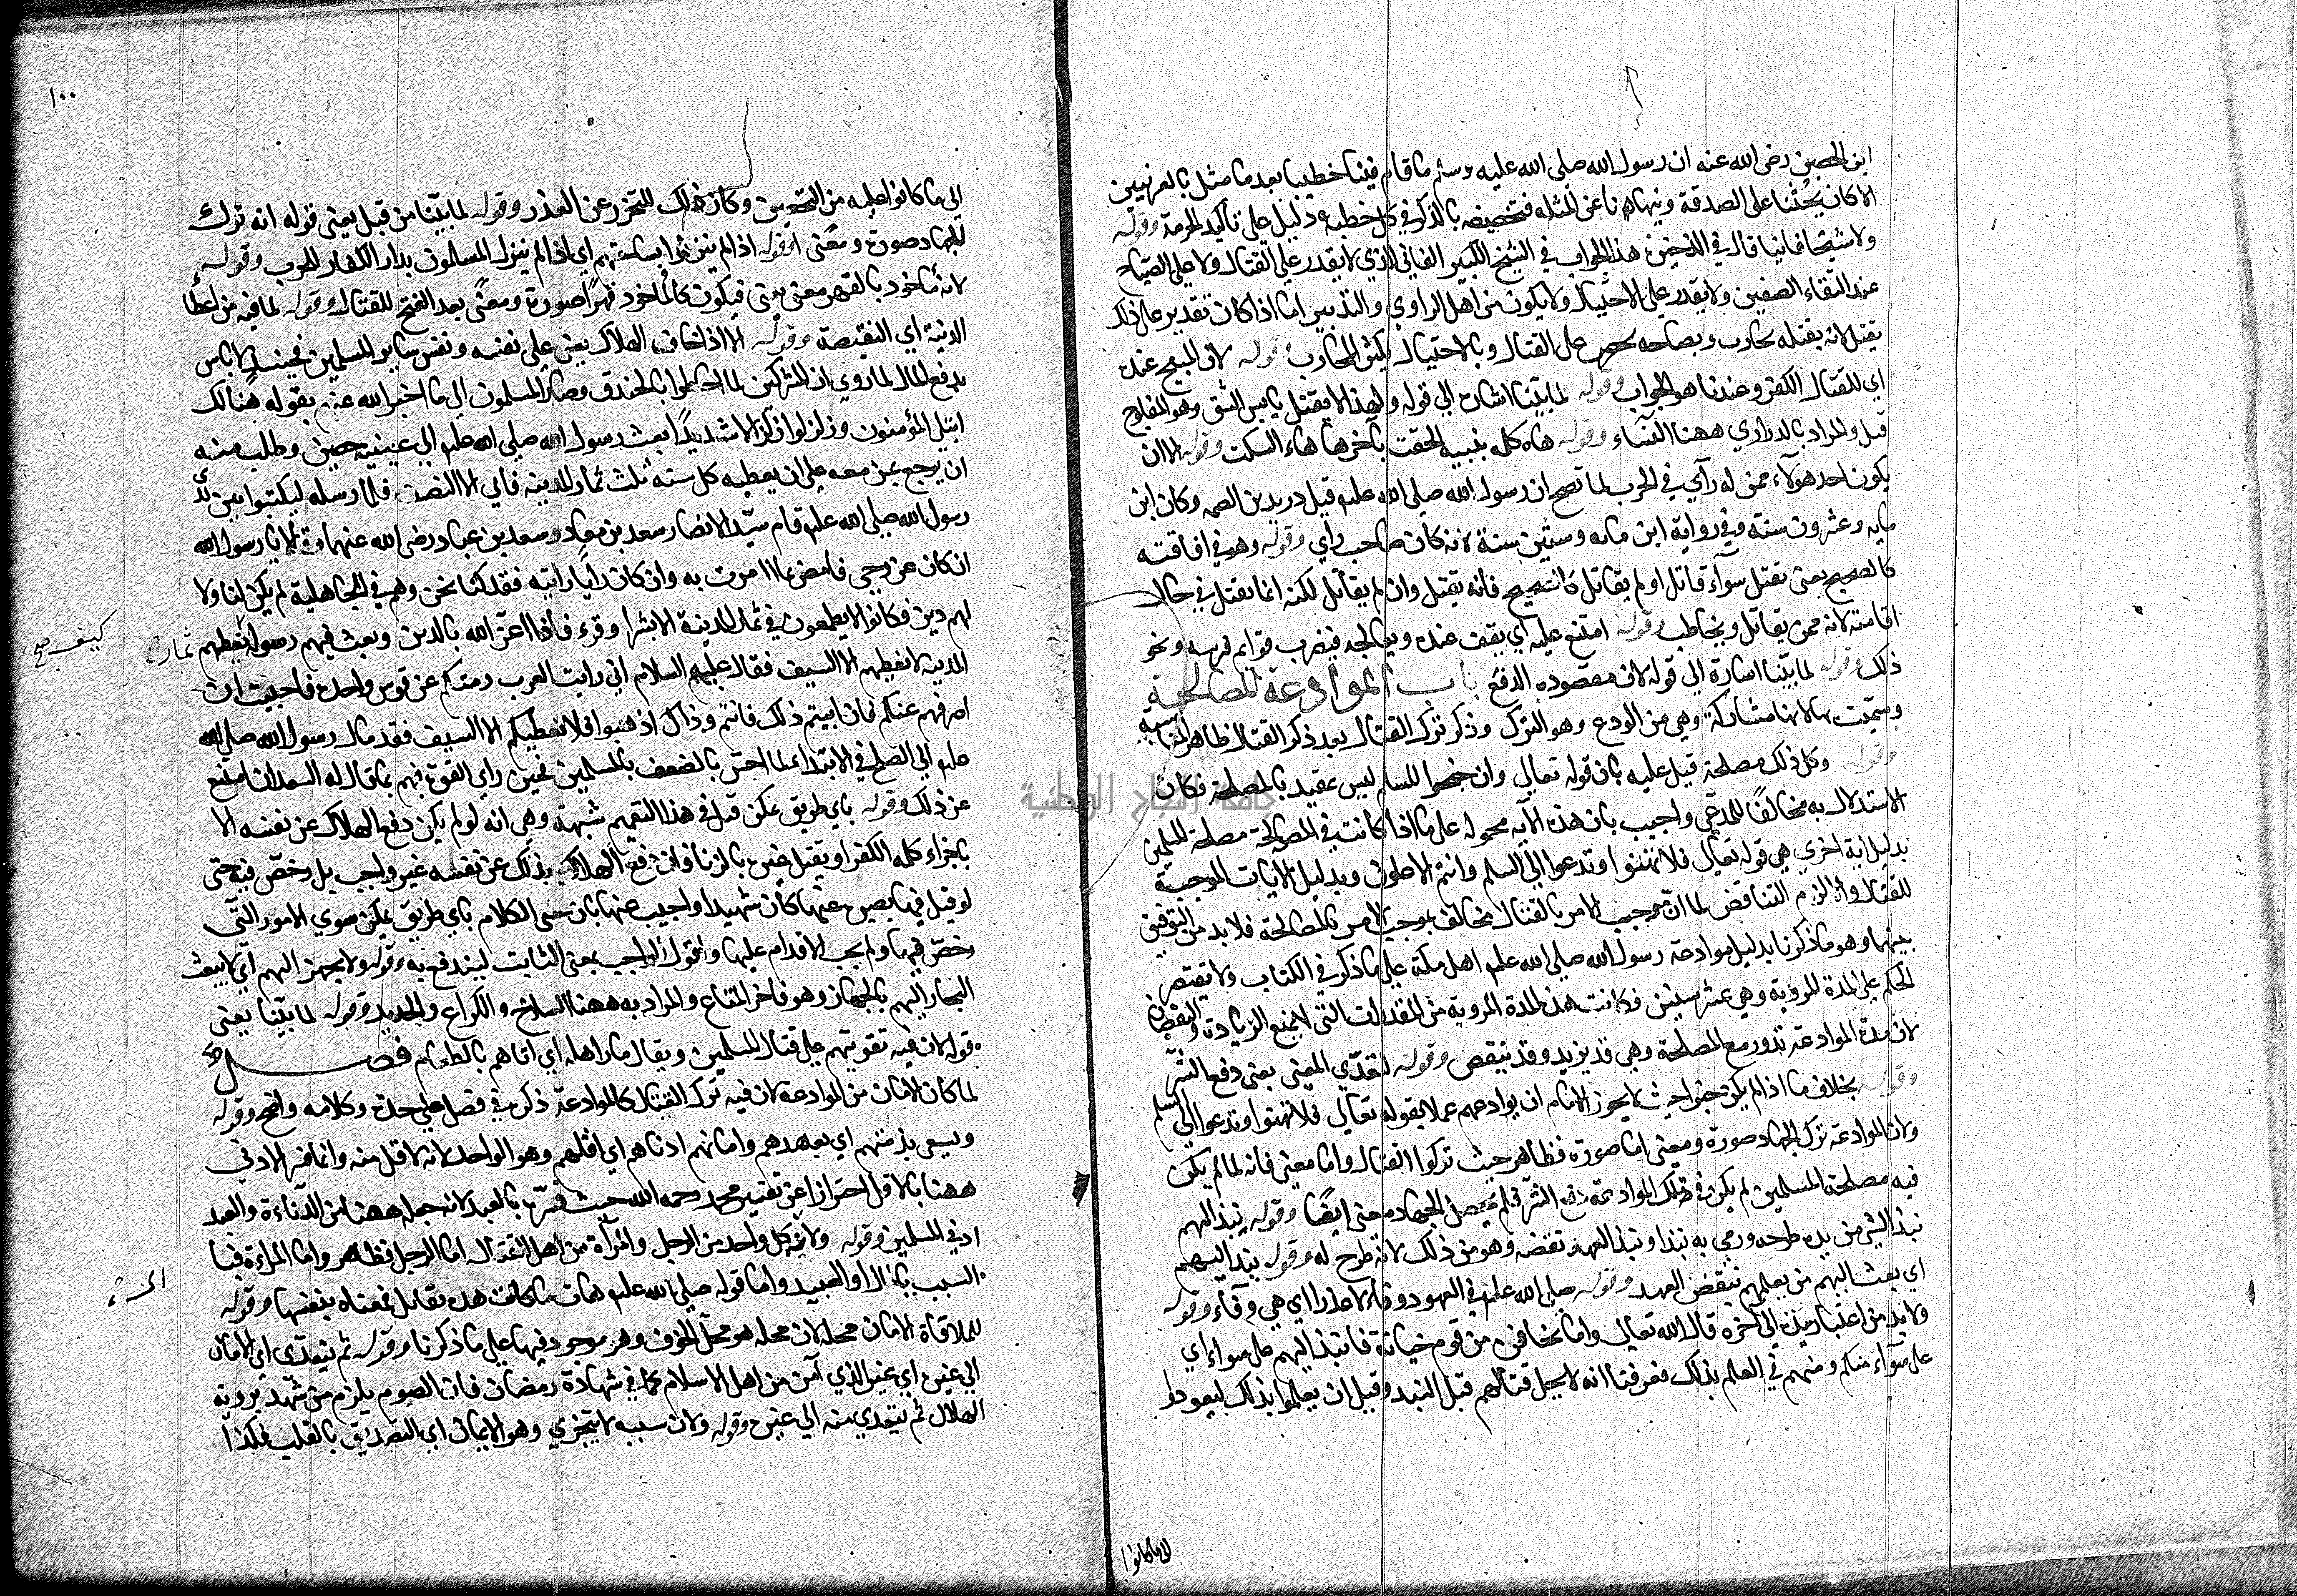 ابن الحصين رضى الله عنه ان رسول الله صلى الله عليه وسلم ما قام فينا خطيبا بعد ما مثل بالعرنيين
الا كان يحثنا على الصدقة وينهانا عن المثلة فتخصيصه بالذكر في كل خطبة دليل على تأكيد الحرمة وقوله
ولا شيخا فانيا قال في الذخيرة هذا الجواب في الشيخ الكبير الفاني الذي لا يقدر على القتال ولا على الصياح
عند التقاء الصفين ولا يقدر على الاحتيال ولا يكون من اهل الراوي والتدبير اما اذا كان يقدر على ذلك
يقتل لانه بقتاله محارب وبصياحه يحرض على القتال وبالاحتيال يكثر المحارب وقوله لان المبيح عنده
اي للقتال الكفر وعندنا هو الجواب وقوله لما بيّنا اشارة الى قوله ولهذا لا يقتل يابس الشق وهو المفلوج
قيل والمراد بالذراري ههنا النساء وقوله هاه كلمة تنبيه الحقت بآخرها هاء السكت وقوله الا ان
يكون احد هولآء ممن له رآي في الحرب لما صح ان رسول الله صلى الله عليه قتل دريد بن الصمه وكان ابن
مايه وعشرون سنة وفي رواية ابن مايه وستين سنة لانه كان صاحب رأي وقوله وهو في افاقته
كالصحيح يعنى يقتل سوآء قاتل او لم يقاتل كالصحيح فانه يقتل وان لم يقاتل لكنه انما يقتل في حال
اقامته لانه ممن يقاتل ويخاطب وقوله امتنع عليه اي يقف عنده ويعالجه فيضرب قوايم فرسه ونحو
ذلك وقوله لما بيّنا اشارة الى قوله لان مقصوده الدفع باب الموادعة المصالحة
وسميت بها لانها متاركة وهي من الودع وهو الترك وذكر ترك القتال بعد ذكر القتال ظاهر المناسبة
وقوله وكل ذلك مصلحة قيل عليه بان قوله تعالى وان جنحوا للسلم ليس بمقيد بالمصلحة فكان
الاستدلال به مخالفًا للمدّعى واجيب بان هذه الآيه محموله على ما اذا كانت في المصالحة مصلحة للمسلمين
بدليل اية اخرى هي قوله تعالى فلا تهنوا وتدعوا الى السلم وانتم الاعلون وبدليل الايات الموجبة
للقتال والا لزم التناقض لما ان موجب الامر بالقتال مخالف لموجب الامر بالمصالحة فلا بد من التوفيق
بينهما وهو ما ذكرنا بدليل موادعة رسول الله صلى الله عليه اهل مكة على ما ذكر في الكتاب ولا يقتصر
الحكم على المدة المروية وهي عشر سنين فكانت هذه المدة المروية من المقدرات التى لا تمنع الزيادة والنقصان
لان مدة الموادعة تدور مع المصلحة وهي قد يزيد وقد ينقص وقوله لتعدّي المعنى يعنى دفع الشر
وقوله بخلاف ما اذا لم يكن خيرا حيث لا يجوز للامام ان يوادعهم عملا بقوله تعالى فلا تهنوا وتدعوا الى السلم
ولان الموادعة ترك الجهاد صورة ومعنى اما صورة فظاهر حيث تركوا القتال واما معنى فانه لما لم يكن
فيه مصلحة المسلمين لم يكن في تلك الموادعة دفع الشر فلم يحصل الجهاد معنى ايضًا وقوله ينبذ اليهم
نبذ الشئ من يده طرحه ورمى به نبذا ونبذ العهد نقضه وهو من ذلك لانه طرح له وقوله نبذ اليهم
اي بعث اليهم من يعلمهم بنقض العهد وقوله صلى الله عليه في العهود وفاء لا غدر اي هي وفآء وقوله
ولا بد من اعتبار مدة الى آخره قال الله تعالى واما تخافن من قوم خيانة فانبذ اليهم على سواء اي
على سوآء منكم ومنهم في العلم بذلك فعرفنا انه لا يحل قتالهم قبل النبذ وقبل ان يعلموا بذلك ليعودوا
الى ما كانوا
١٠٠
الى ما كانوا عليه من التحصين وكان ذلك للتحرز عن الغدر وقوله لما بيّنا من قبل يعنى قوله انه ترك
للجهاد صورة ومعنى او قوله اذا لم ينزلوا بساحتهم اي اذا لم ينزل المسلمون بدار الكفار للحرب وقوله
لانه مأخوذ بالقهر معنى يعنى فيكون كالمأخوذ قهرًا صورة ومعنًى بعد الفتح للقتال وقوله لما فيه من اعطآ
الدنية اي النقيصة وقوله الا اذا خاف الهلاك يعنى على نفسه ونفس ساير المسلمين فحينئذ لا باس
بدفع المال لما روي ان المشركين لما احاطوا بالخندق وصار المسلمون الى ما اخبر الله عنهم بقوله هنالك
ابتلى المؤمنون وزلزلوا زلزالا شديدًا بعث رسول الله صلى الله عليه الى عيينة بن حصين وطلب منه
ان يرجع بمن معه على ان يعطيه كل سنة ثلث ثمار المدينه فابى الا النصف فلما ارسله ليكتبوا بين يدي
رسول الله صلى الله عليه قام سيّدا الانصار سعد بن معاذ وسعد بن عباد رضى الله عنهما وقالا يا رسول الله
ان كان عن وحي فامض بما امرت به وان كان رأيا رايته فقد كنا نحن وهم في الجاهلية لم يكن لنا ولا
لهم دين فكانوا لا يطمعون في ثمار المدينة الا بشرا او قرى فاذا اعزّ الله بالدين وبعث فيهم رسوله نعطيهم ثمار
كيف صح
المدينه لا نعطيهم الا السيف فقال عليهم السلام اني رايت العرب رمتكم عن قوس واحده فاحببت ان
اصرفهم عنكم فان ابيتم ذلك فانتم وذاك اذهبوا فلا نعطيكم الا السيف فقد مال رسول الله صلى الله
عليه الى الصلح في الابتداء لما احس بالضعف بالمسلمين فحين راى القوة فيهم بما قال له السعدان امتنع
عن ذلك وقوله باي طريق يمكن قيل في هذا التعميم شبهة وهي انه لو لم يكن دفع الهلاك عن نفسه الا
باجراء كلمه الكفر او بقتل غيره بالزنا فان دفع الهلاك بذلك عن نفسه غير واجب بل رخص فيه حتى
لو قتل فيما يصبر عنها كان شهيدا واجيب عنها بان معنى الكلام باي طريق يمكن سوى الامور التّى
رخص فيها ولم يجب الاقدام عليها واقول الواجب بمعنى الثابت ليندفع به وقوله ولا يجهز اليهم اي لا يبعث
التجار اليهم بالجهاز وهو فاخر المتاع والمراد به ههنا السلاح والكراع والحديد وقوله لما بيّنا يعنى
قوله لان فيه تقويتهم على قتال المسلمين ويقال مار اهله اي اتاهم بالطعام فصل
لما كان الامان من الموادعة لان فيه ترك القتال كالموادعة ذكره في فصل على حدة وكلامه واضح وقوله
ويسعى بذمتهم اي بعهدهم وامانهم ادناهم اي اقلهم وهو الواحد لانه لا اقل منه وانما فسر الادنى
ههنا بالاقل احترازا عن تفسير محمد رحمه الله حيث فسّره بالعبد لانه جعله ههنا من الدنآءة والعبد
ادنى المسلمين وقوله ولانه كل واحد من الرجل والمرأة من اهل القتال اما الرجل فظاهر واما المراءة فبا
السبب بالمال او العبيد واما قوله صلى الله عليه هاه ما كانت هذه تقاتل فمعناه بنفسها وقوله
للملاقاة الامان محله لان محله هو محل الخوف وهو موجود فيها على ما ذكرنا وقوله ثم يتعدّى اي الامان
الى غيره اي غير الذي آمن من اهل الاسلام كما في شهادة رمضان فان الصوم يلزم من شهد بروية
الهلال ثم يتعدي منه الى غيره وقوله ولان سببه لا يتجزى وهو الايمان اي التصديق بالقلب فكذا
جامعة النجاح الوطنية